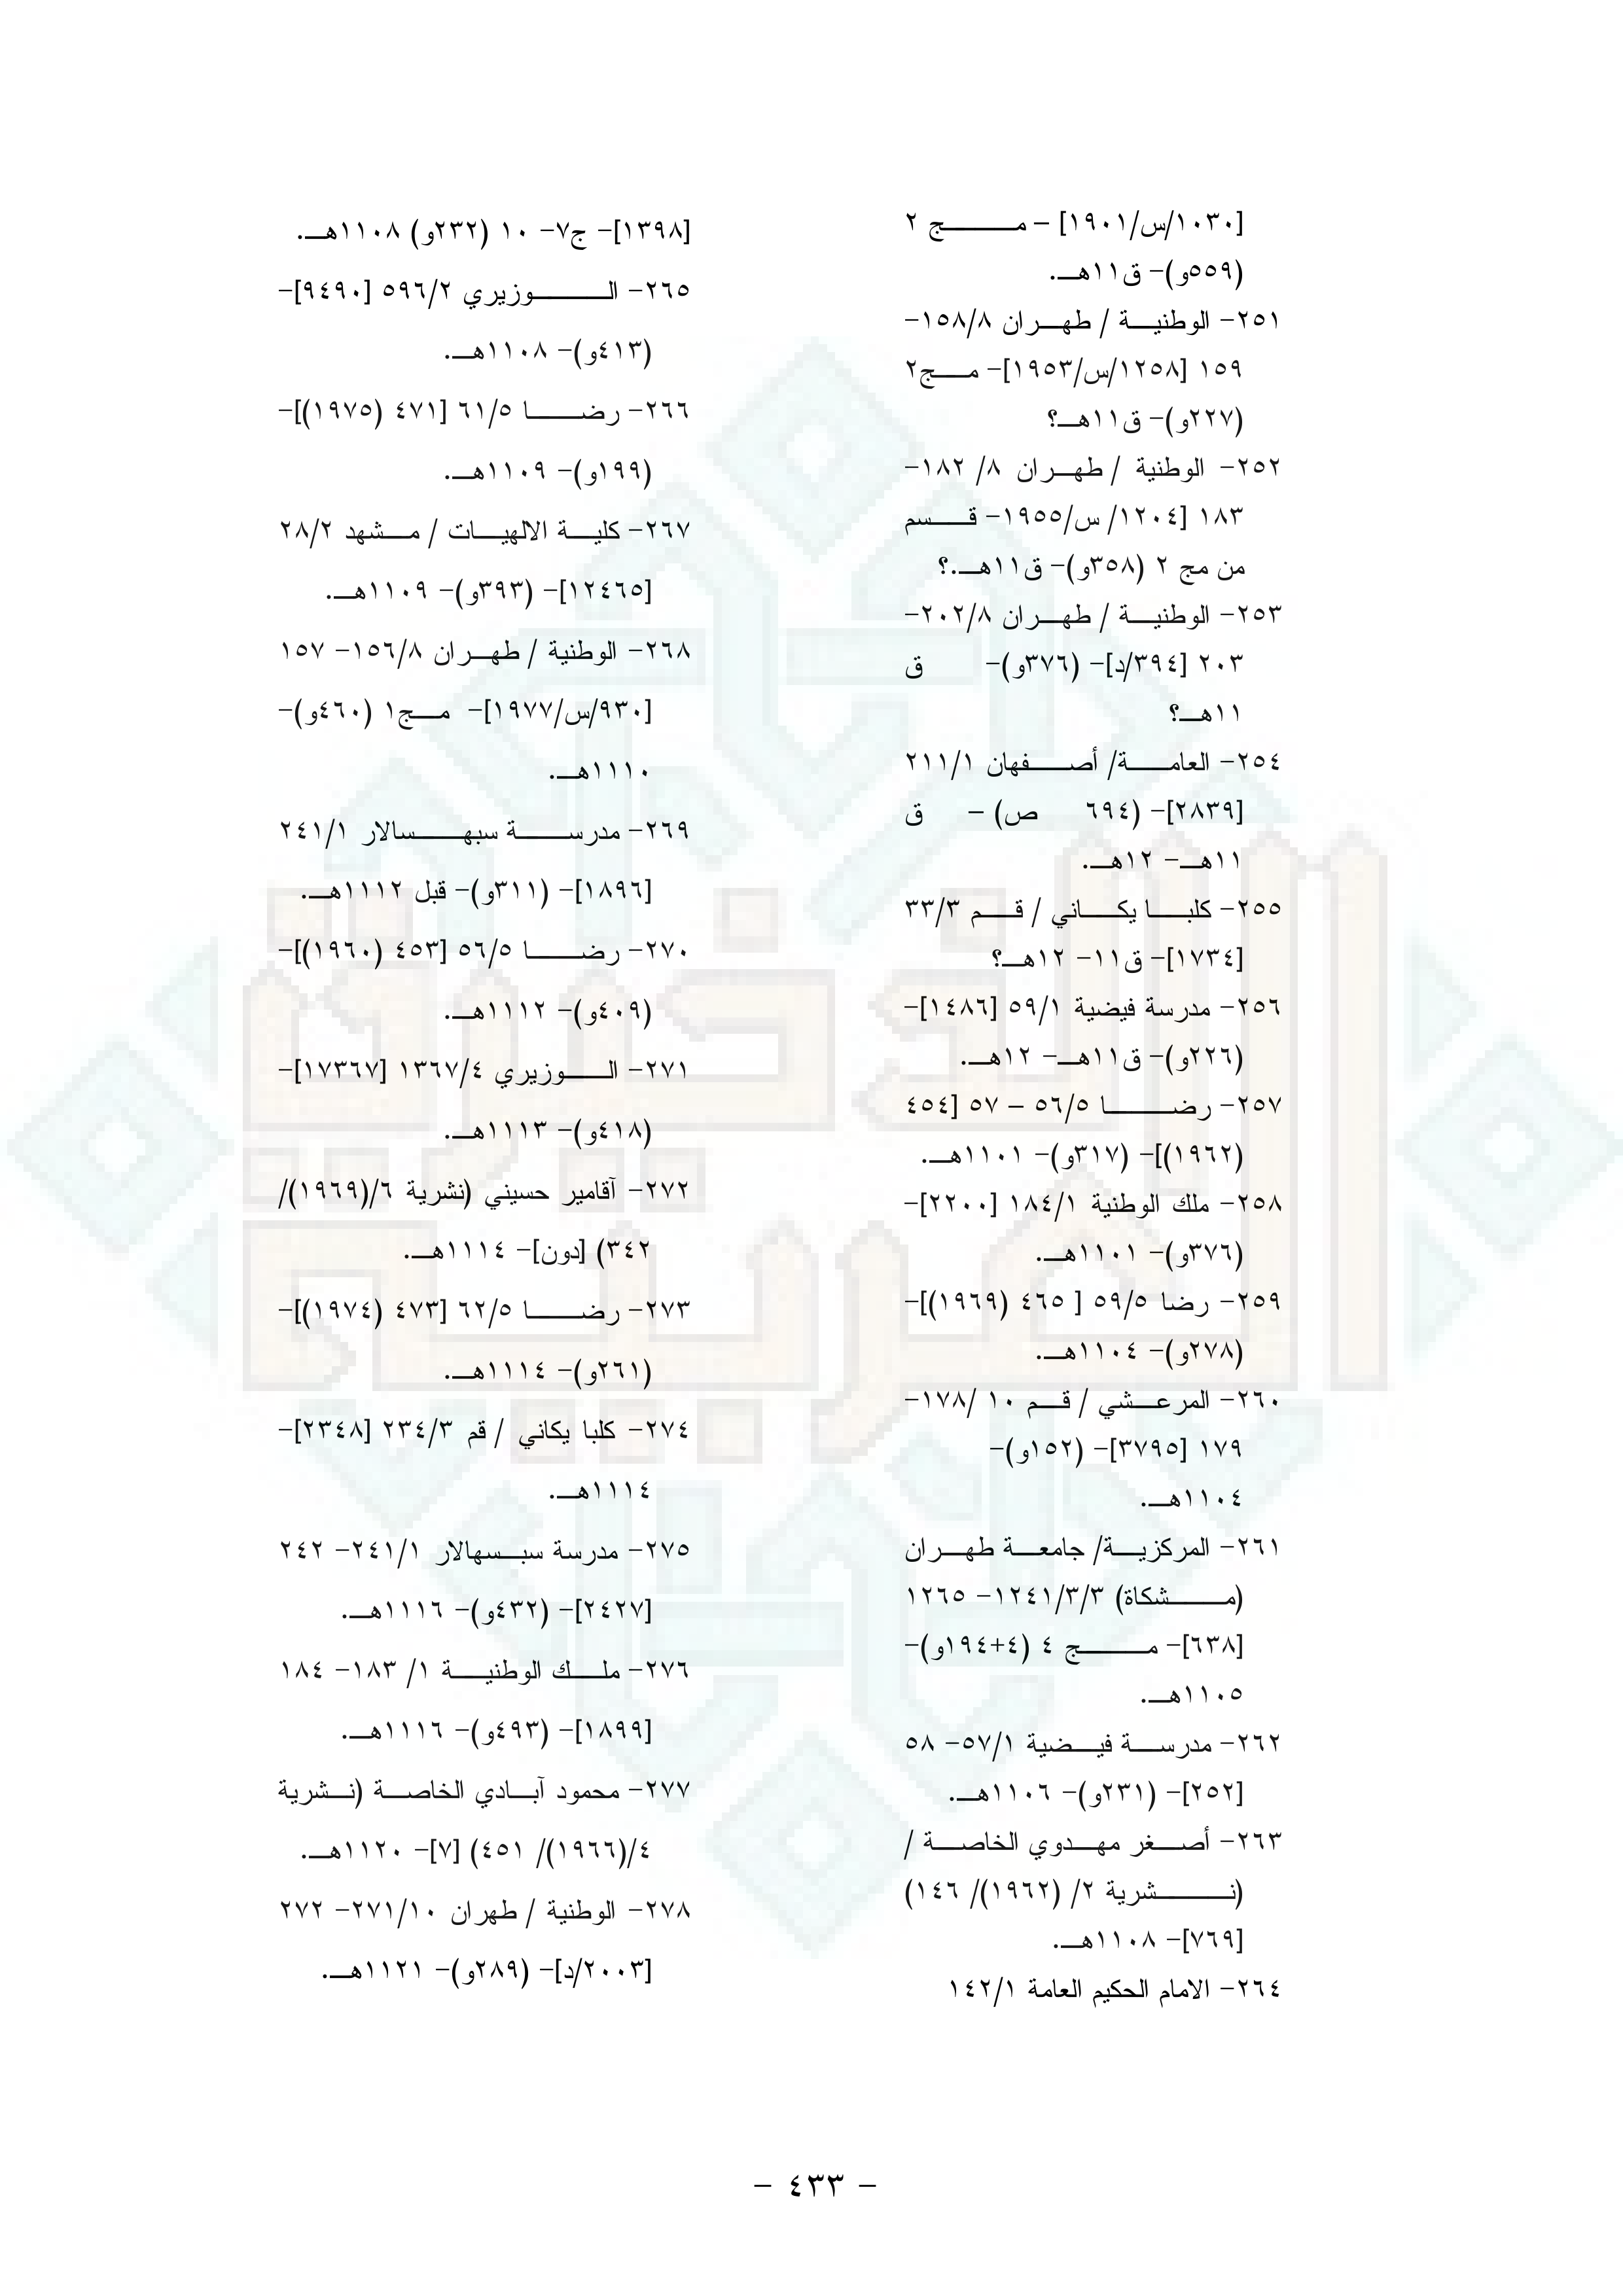 [١٠٣٠/س/١٩٠١] – مج ٢
(٥٥٩و)- ق١١هـ.
٢٥١- الوطنية / طهران ١٥٨/٨-
١٥٩ [١٢٥٨/س/١٩٥٣]- مج٢
(٢٢٧و)- ق١١هـ؟
٢٥٢- الوطنية / طهران ٨/ ١٨٢-
١٨٣ [١٢٠٤/ س/١٩٥٥- قسم
من مج ٢ (٣٥٨و)- ق١١هـ.؟
٢٥٣- الوطنية / طهران ٢٠٢/٨-
٢٠٣ [٣٩٤/د]- (٣٧٦و)- ق
١١هـ؟
٢٥٤- العامة/ أصفهان ٢١١/١
[٢٨٣٩]- (٦٩٤ ص) – ق
١١هـ- ١٢هـ.
٢٥٥- كلبا يكاني / قم ٣٣/٣
[١٧٣٤]- ق١١- ١٢هـ؟
٢٥٦- مدرسة فيضية ٥٩/١ [١٤٨٦]-
(٢٢٦و)- ق١١هـ- ١٢هـ.
٢٥٧- رضا ٥٦/٥ – ٥٧ [٤٥٤
(١٩٦٢)]- (٣١٧و)- ١١٠١هـ.
٢٥٨- ملك الوطنية ١٨٤/١ [٢٢٠٠]-
(٣٧٦و)- ١١٠١هـ.
٢٥٩- رضا ٥٩/٥ [ ٤٦٥ (١٩٦٩)]-
(٢٧٨و)- ١١٠٤هـ.
٢٦٠- المرعشي / قم ١٠ /١٧٨-
١٧٩ [٣٧٩٥]- (١٥٢و)-
١١٠٤هـ.
٢٦١- المركزية/ جامعة طهران
(مشكاة) ١٢٤١/٣/٣- ١٢٦٥
[٦٣٨]- مج ٤ (٤+١٩٤و)-
١١٠٥هـ.
٢٦٢- مدرسة فيضية ٥٧/١- ٥٨
[٢٥٢]- (٢٣١و)- ١١٠٦هـ.
٢٦٣- أصغر مهدوي الخاصة /
(نشرية ٢/ (١٩٦٢)/ ١٤٦)
[٧٦٩]- ١١٠٨هـ.
٢٦٤- الامام الحكيم العامة ١٤٢/١
[١٣٩٨]- ج٧- ١٠ (٢٣٢و) ١١٠٨هـ.
٢٦٥- الوزيري ٥٩٦/٢ [٩٤٩٠]-
(٤١٣و)- ١١٠٨هـ.
٢٦٦- رضا ٦١/٥ [٤٧١ (١٩٧٥)]-
(١٩٩و)- ١١٠٩هـ.
٢٦٧- كلية الالهيات / مشهد ٢٨/٢
[١٢٤٦٥]- (٣٩٣و)- ١١٠٩هـ.
٢٦٨- الوطنية / طهران ١٥٦/٨- ١٥٧
[٩٣٠/س/١٩٧٧]- مج١ (٤٦٠و)-
١١١٠هـ.
٢٦٩- مدرسة سبهسالار ٢٤١/١
[١٨٩٦]- (٣١١و)- قبل ١١١٢هـ.
٢٧٠- رضا ٥٦/٥ [٤٥٣ (١٩٦٠)]-
(٤٠٩و)- ١١١٢هـ.
٢٧١- الوزيري ١٣٦٧/٤ [١٧٣٦٧]-
(٤١٨و)- ١١١٣هـ.
٢٧٢- آقامير حسيني (نشرية ٦/(١٩٦٩)/
٣٤٢) [دون]- ١١١٤هـ.
٢٧٣- رضا ٦٢/٥ [٤٧٣ (١٩٧٤)]-
(٢٦١و)- ١١١٤هـ.
٢٧٤- كلبا يكاني / قم ٢٣٤/٣ [٢٣٤٨]-
١١١٤هـ.
٢٧٥- مدرسة سبسهالار ٢٤١/١- ٢٤٢
[٢٤٢٧]- (٤٣٢و)- ١١١٦هـ.
٢٧٦- ملك الوطنية ١/ ١٨٣- ١٨٤
[١٨٩٩]- (٤٩٣و)- ١١١٦هـ.
٢٧٧- محمود آبادي الخاصة (نشرية
٤/(١٩٦٦)/ ٤٥١) [٧]- ١١٢٠هـ.
٢٧٨- الوطنية / طهران ٢٧١/١٠- ٢٧٢
[٢٠٠٣/د]- (٢٨٩و)- ١١٢١هـ.
- ٤٣٣ -